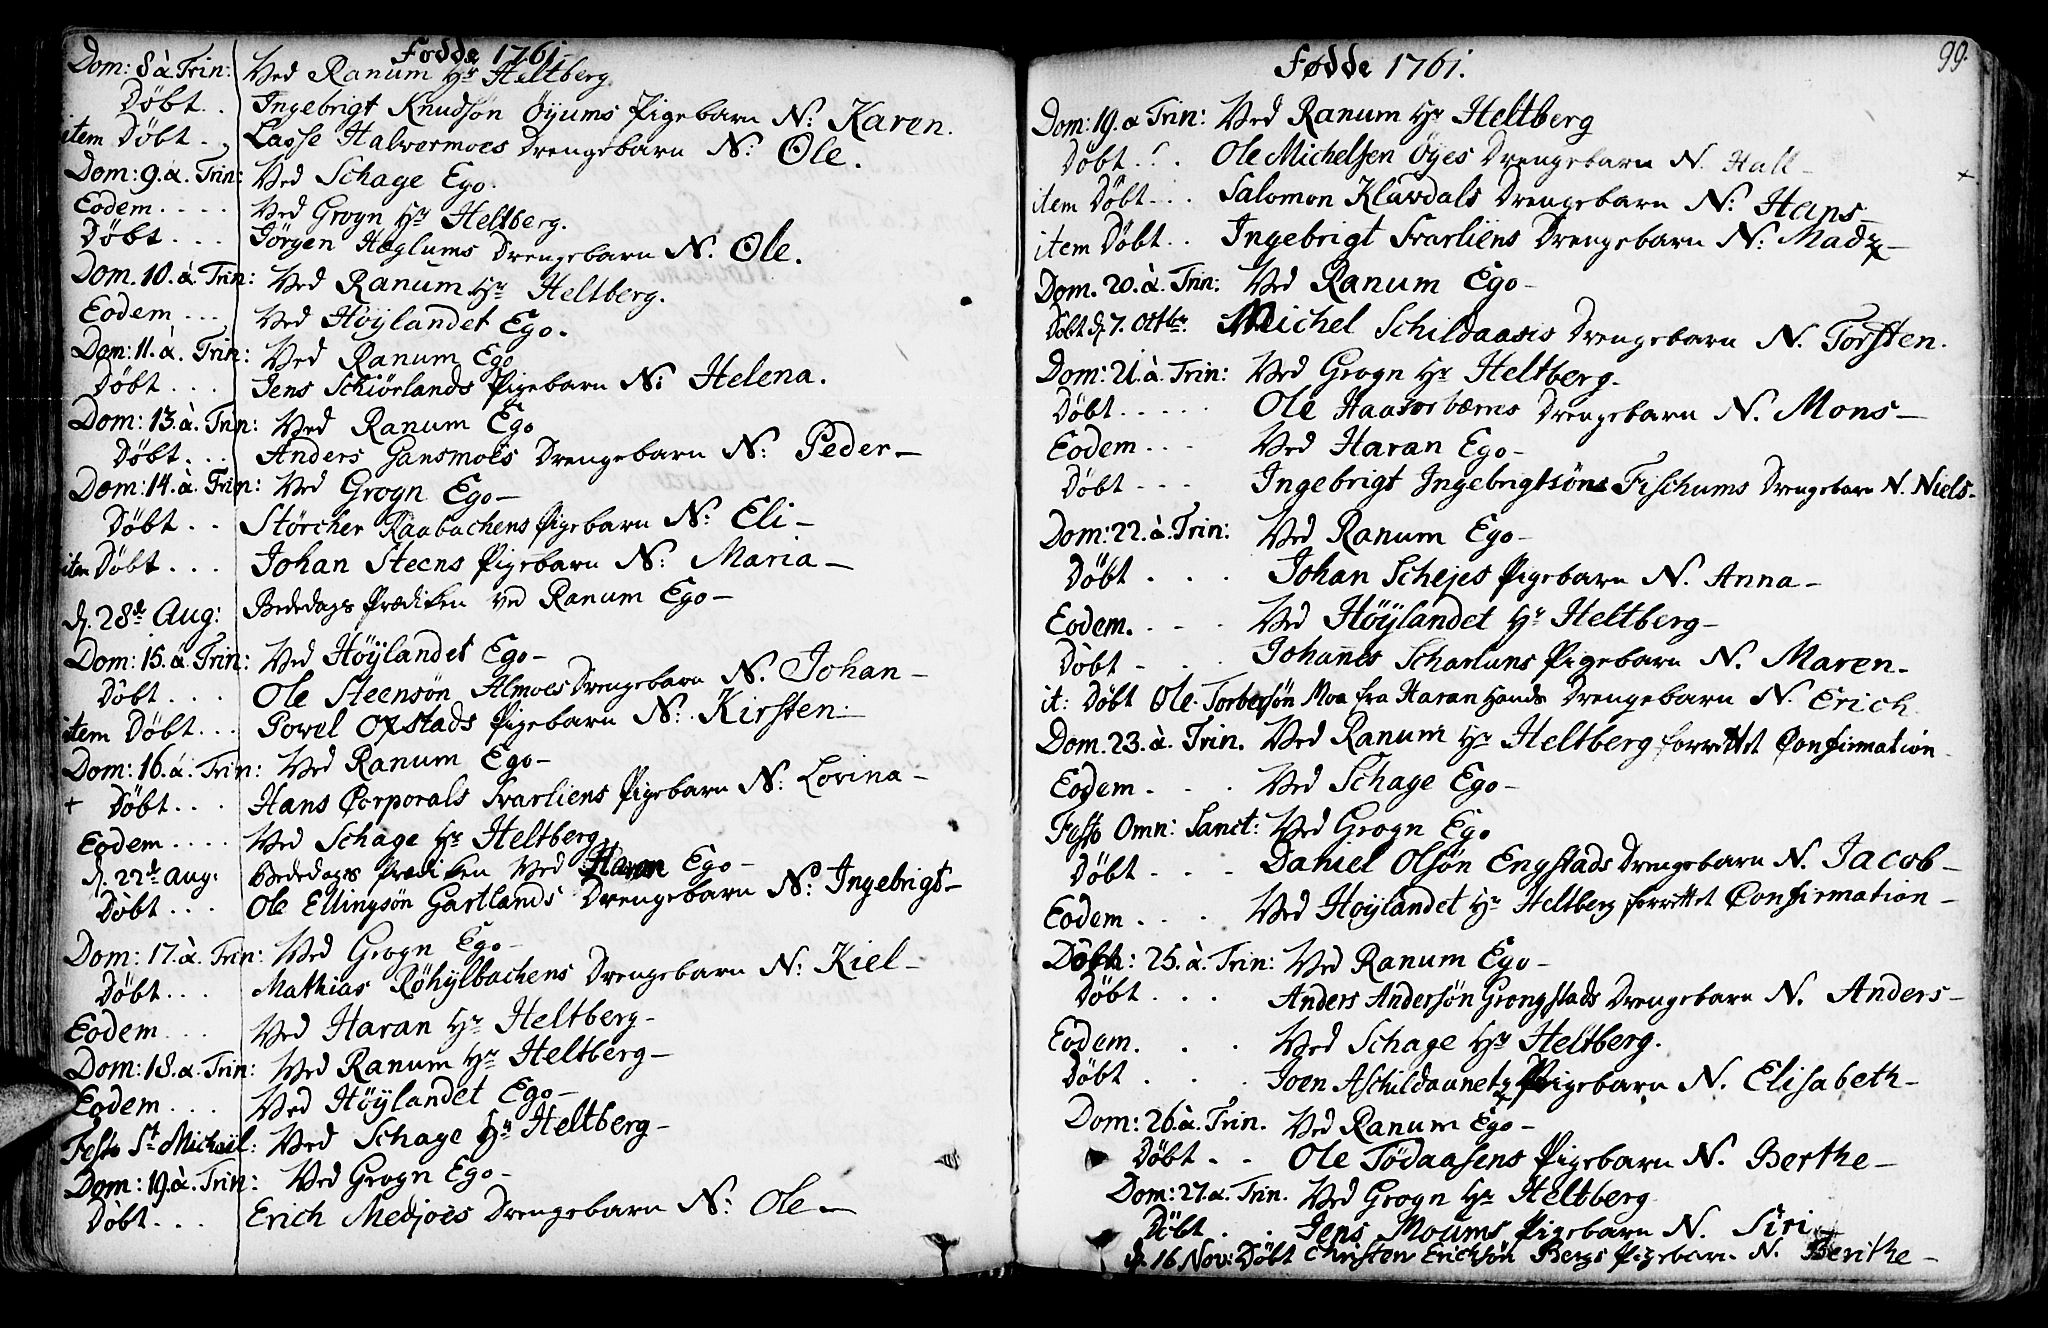 Fødde 1761.
Dom: 8 à Trin: Ved Ranum Hr Heltberg
Döbt . . Ingebrigt Knudsøn Öyums Pigebarn N: Karen.
item Döbt . , Lasse Halvermoes Drengebarn N: Ole.
Dom: 9. à. Trin: Ved Schage Ego.
Eodem . . . . Ved Grogn Hr Heltberg.
Döbt . . . Jörgen Hæglums Drengebarn N. Ole.
Dom. 10. à. Trin: Ved Ranum Hr Heltberg.
Eodem . . . Ved Höylandet Ego.
Dom: 11. à. Trin: Ved Ranum Ego
Döbt . . . Jens Schiörlands Pigebarn N: Helena.
Dom: 13. à. Trin: Ved Ranum Ego
Döbt . . . Anders Gansmoes Drengebarn N: Peder –
Dom: 14. à. Trin: Ved Grogn Ego –
Döbt . . Störcher Raabachens Pigebarn N: Eli –
item Döbt . . . Johan Steens Pigebarn N: Maria –
d. 28de Aug: Bededags Prædiken ved Ranum Ego –
Dom: 15. à. Trin: Ved Höylandet Ego –
Döbt . . . Ole Steensön Almoes Drengebarn N. Johan –
item Döbt . . . Povel Oxstads Pigebarn N: Kirsten –
Dom: 16. à. Trin: Ved Ranum Ego –
+ Döbt . . . Hans Corporals Svarliens Pigebarn N: Lovina –
Eodem . . . . Ved Schage Hr Heltberg
d. 22de Aug: Bededags Prædiken Ved Haran Ego –
Döbt . . . Ole Ellingsön Gartlands Drengebarn N: Ingebrigt –
Dom: 17. à. Trin: Ved Grogn Ego –
Döbt . . . Mathias Röhylbachens Drengebarn N: Kiel –
Eodem . . . Ved Haran Hr Heltberg –
Dom: 18. à. Trin: Ved Ranum Hr Heltberg –
Eodem . . . Ved Höylandet Ego –
Festo St Michaël: Ved Schage Hr Heltberg –
Dom: 19. à. Trin: Ved Grogn Ego –
Döbt . . . Erich Medjoes Drengebarn N: Ole –
99.
Fødde 1761.
Dom: 19. à Trin: Ved Ranum Hr Heltberg
Döbt . . . Ole Michelsen Öyes Drengebarn N. Hall – +
item Döbt . . . Salomon Klævdals Drengebarn N: Hans –
item Döbt . . Ingebrigt Svarliens Drengebarn N: Madz –
Dom. 20. à. Trin: Ved Ranum Ego –
Döbt d. 7. Octbr. Michel Schildaasis Drengebarn N. Torsten.
Dom: 21. à. Trin: Ved Grogn Hr Heltberg.
Döbt . . . . . Ole Drengebarn N. Mons –
Eodem . . . Ved Haran Ego –
Döbt . . . Ingebrigt Ingebrigtsöns Fischums Drengebarn N. Niels –
Dom: 22. à. Trin: Ved Ranum Ego –
Döbt . . . Johan Schejes Pigebarn N. Anna –
Eodem. . . . Ved Höylandet Hr Heltberg –
Döbt . . . Johanes Scharluns Pigebarn N. Maren –
it: Döbt Ole Torbersön Moa fra Haran hands Drengebarn N. Erich
Dom. 23. à. Trin. Ved Ranum Hr Heltberg forrettet Confirmation –
Eodem . . . Ved Schage Ego –
Festo Omn: Sanct: Ved Grogn Ego
Döbt . . . Daniel Olsön Engstads Drengebarn N. Jacob –
Eodem . . . Ved Höylandet Hr Heltberg forrettet Confirmation –
Dom: 25. à. Trin: Ved Ranum Ego –
Döbt . . . Anders Andersön Grongstads Drengebarn N. Anders –
Eodem. . . . Ved Schage Hr Heltberg.
Döbt . . . Joen Aschildaunet Pigebarn N. Elisabeth –
Dom: 26. à. Trin. Ved Ranum Ego –
Döbt . . Ole Födaasens Pigebarn N. Berthe –
Dom: 27. à. Trin. Ved Grogn Hr Heltberg
Döbt . . Jens Moums Pigebarn N. Siri
d. 16 Nov: Döbt Christen Ericksön Bergs Pigebarn N. Berithe –